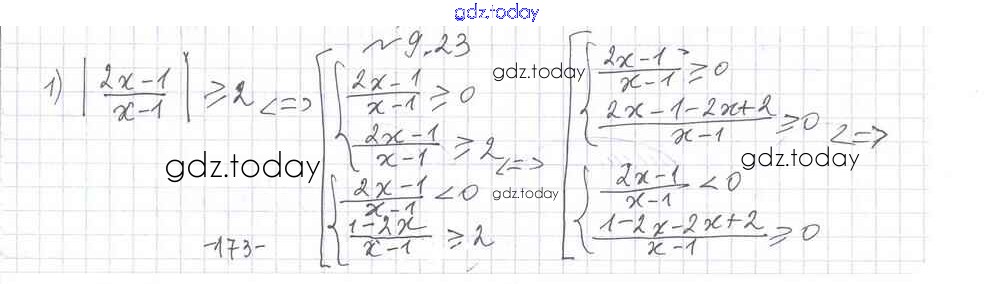 gdz.today
~ 9.23
1) |(2x-1)/(x-1)| ≥ 2 <=> [ { (2x-1)/(x-1) ≥ 0
(2x-1)/(x-1) ≥ 2
{ (2x-1)/(x-1) < 0
(1-2x)/(x-1) ≥ 2
<=> [ { (2x-1)/(x-1) ≥ 0
(2x-1-2x+2)/(x-1) ≥ 0
{ (2x-1)/(x-1) < 0
(1-2x-2x+2)/(x-1) ≥ 0
<=>
gdz.today
gdz.today
gdz.today
gdz.today
-173-